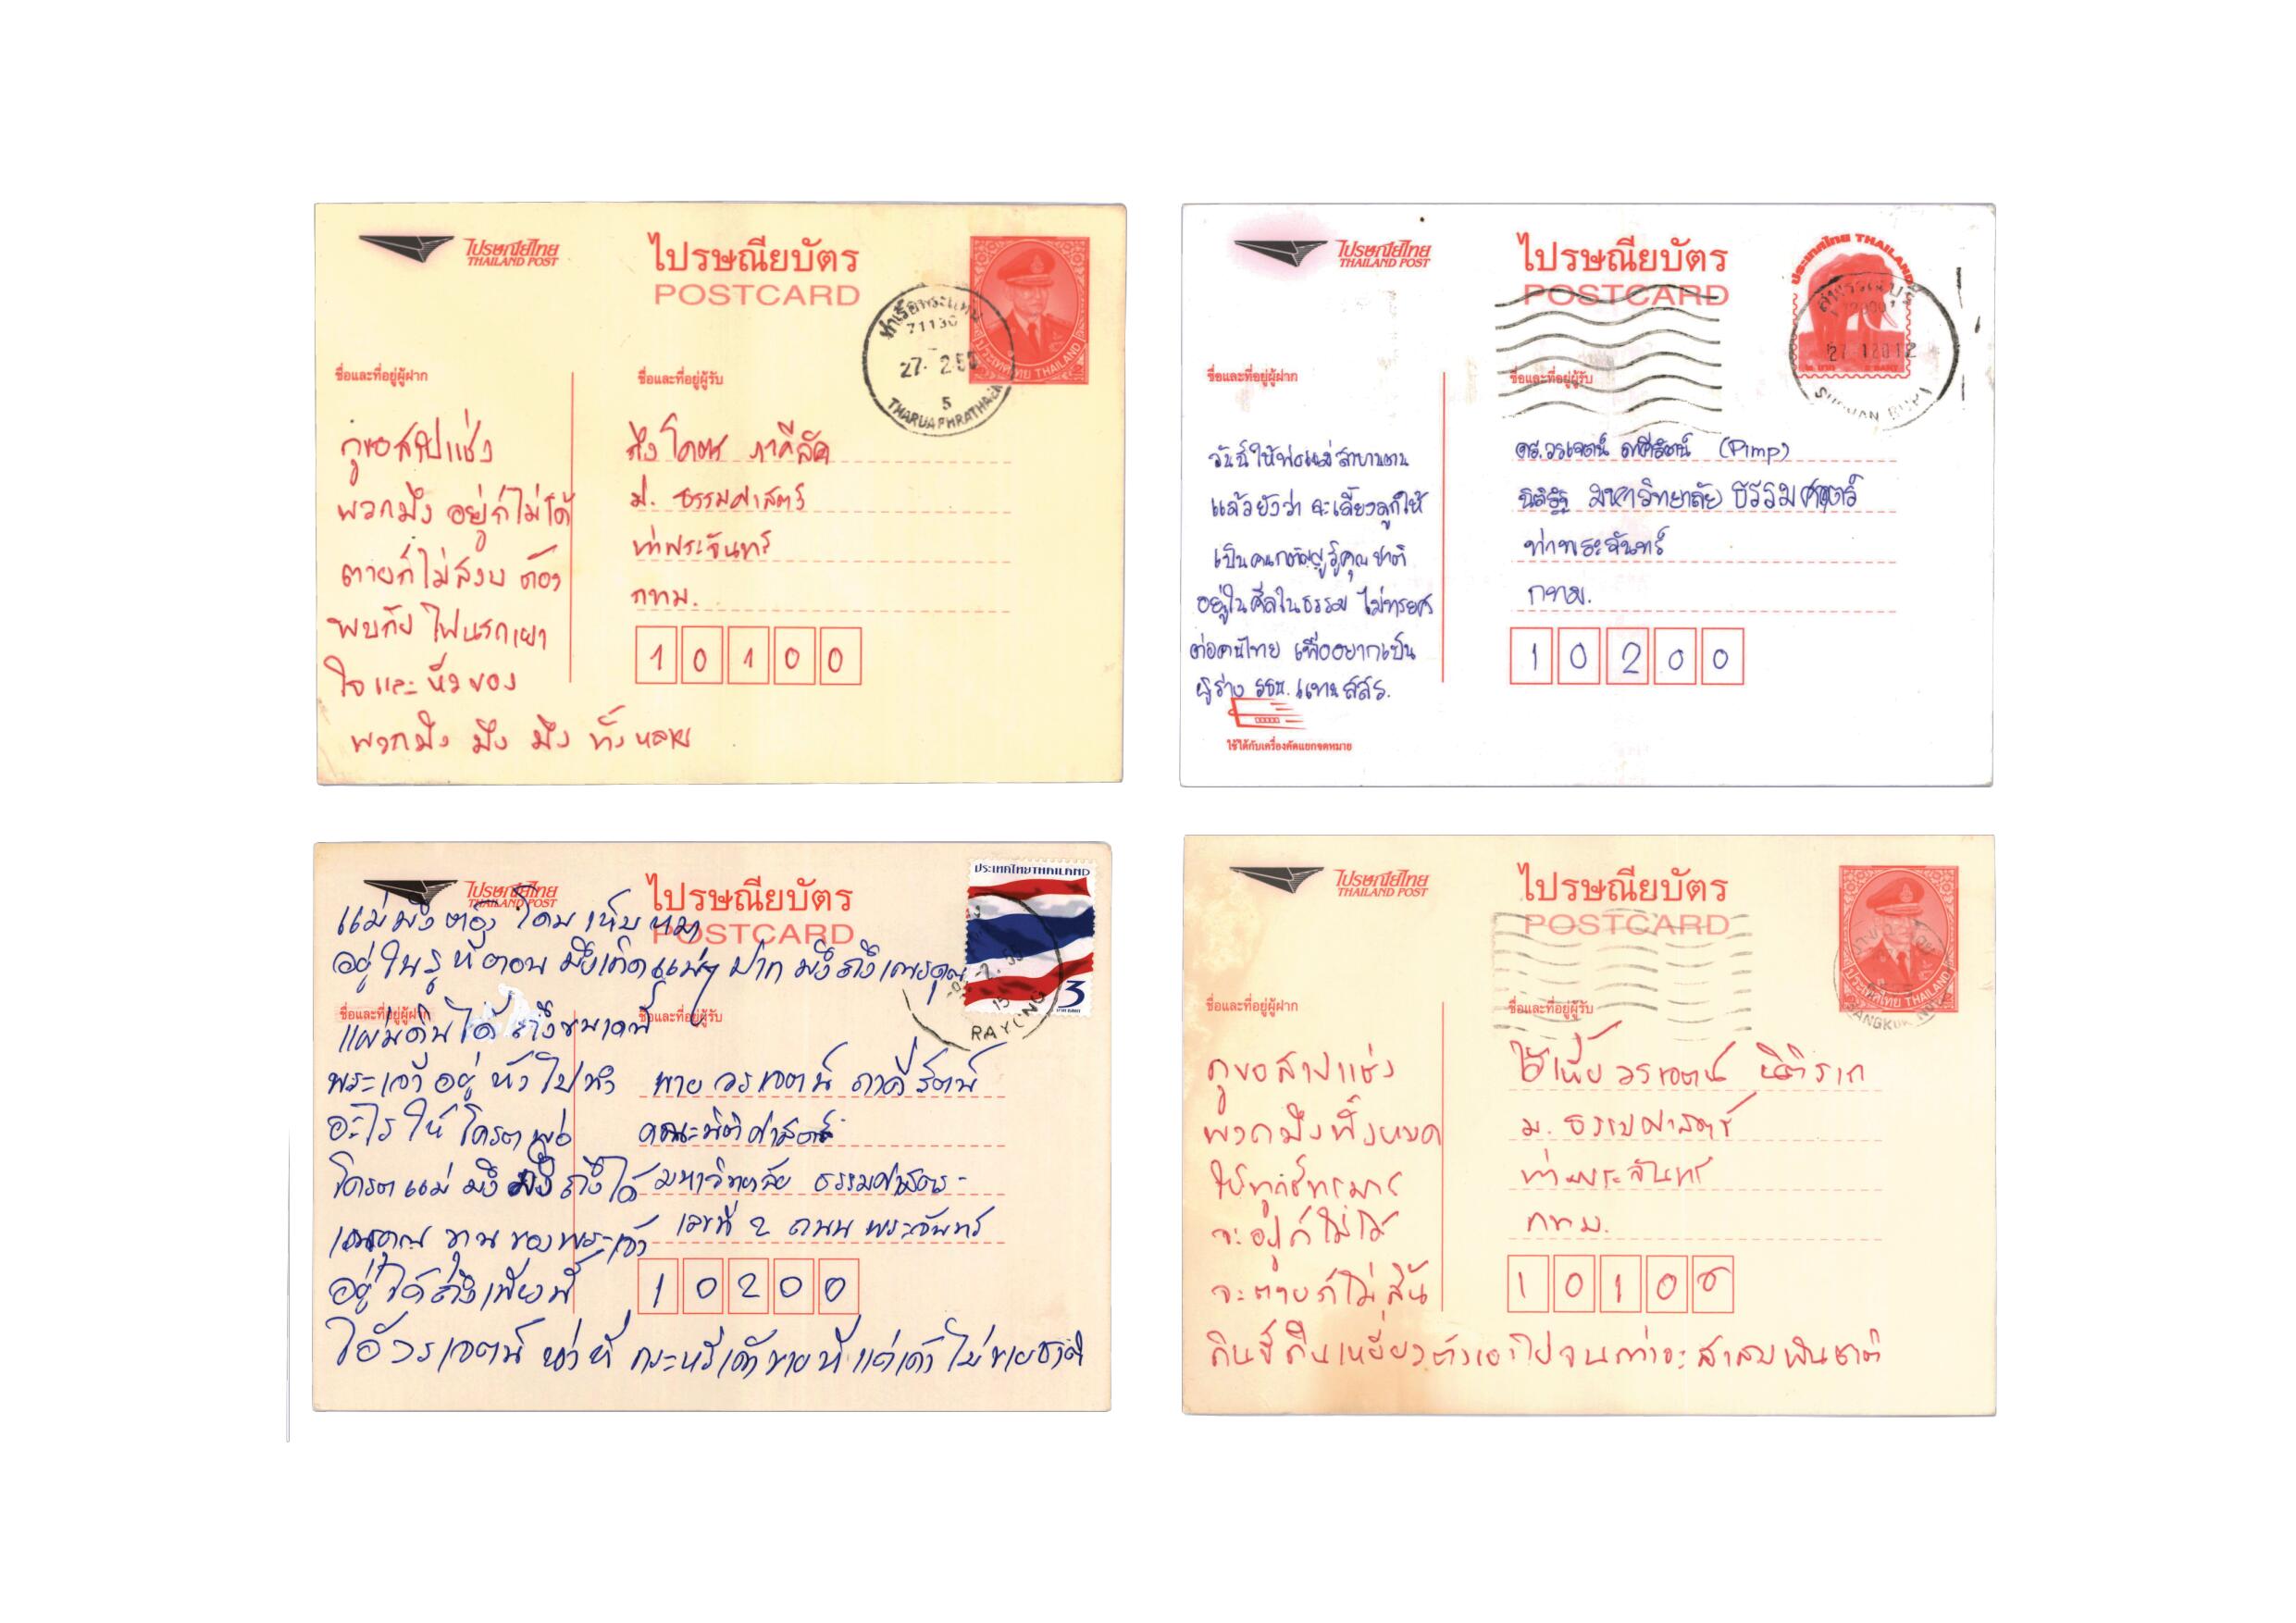 ไปรษณีย์ไทย
THAILAND POST
ไปรษณียบัตร
POSTCARD
ท่าเรือพระแทน
71130
27. 2 5
5
THARUAPHRATHAEN
ประเทศไทย THAILAND
ชื่อและที่อยู่ผู้ฝาก
ชื่อและที่อยู่ผู้รับ
กูขอสาปแช่ง
พวกมึง อยู่ก็ไม่ได้
ตายก็ไม่สงบ ต้อง
พบภัย ไฟนรกเผา
ใจและ หัวของ
พวกมึง มึง มึง ทั้งหลาย
ถึง โคตร ภาคีลัค
ม. ธรรมศาสตร์
ท่าพระจันทร์
กทม.
10100
ไปรษณีย์ไทย
THAILAND POST
ไปรษณียบัตร
POSTCARD
ประเทศไทย THAILAND
สุพรรณบุรี
27 1 2012
SUPHAN BURI
ชื่อและที่อยู่ผู้ฝาก
ชื่อและที่อยู่ผู้รับ
วันนี้ให้พ่อแม่สาบานตน
แล้วยังว่า จะเลี้ยงลูกให้
เป็นคนกตัญญูรู้คุณชาติ
อยู่ในศีลในธรรม ไม่ทรยศ
ต่อคนไทย เพื่ออยากเป็น
ผู้ร่าง รธน. แทน สสร.
ใช้ได้กับเครื่องคัดแยกจดหมาย
ดร.วรเจตน์ ภาคีรัตน์ (Pimp)
นิติรัฐ มหาวิทยาลัย ธรรมศาสตร์
ท่าพระจันทร์
กทม.
10200
ไปรษณีย์ไทย
THAILAND POST
ไปรษณียบัตร
POSTCARD
ประเทศไทย THAILAND
3
RAYONG
แม่มึงต้อง โดน เห็บ หมา
อยู่ในรูหี ตอน มึงเกิดแน่ๆ ปาก มึงถึงเนรคุณ
ชื่อและที่อยู่ผู้ฝาก
ชื่อและที่อยู่ผู้รับ
แผ่นดินได้ ถึงขนาดนี้
พระเจ้าอยู่ หัว ไปทำ
อะไร ให้ โครตพ่อ
โครตแม่ มึง มึงถึงได้
เนรคุณ ทุน ของพระเจ้า
อยู่ได้ถึงเพียงนี้
ไอ้วรเจตน์ หน้าหี กะหรี่เค้าขายหีแต่เค้าไม่ขายชาติ
นาย วรเจตน์ ภาคีรัตน์
คณะนิติศาสตร์
มหาวิทยาลัย ธรรมศาสตร์
เลขที่ 2 ถนน พระจันทร์
10200
ไปรษณีย์ไทย
THAILAND POST
ไปรษณียบัตร
POSTCARD
ประเทศไทย THAILAND
ชื่อและที่อยู่ผู้ฝาก
ชื่อและที่อยู่ผู้รับ
กูขอสาปแช่ง
พวกมึงทั้งหมด
ให้ทุกข์ทรมาร
จะอยู่ก็ไม่ได้
จะตายก็ไม่สิ้น
กินขี้ กินเหยี่ยวตัวเองไปจนกว่าจะสาสมพันชาติ
ไอ้เหี้ย วรเจตน์ นิติราด
ม. ธรรมศาสตร์
ท่าพระจันทร์
กทม.
10100